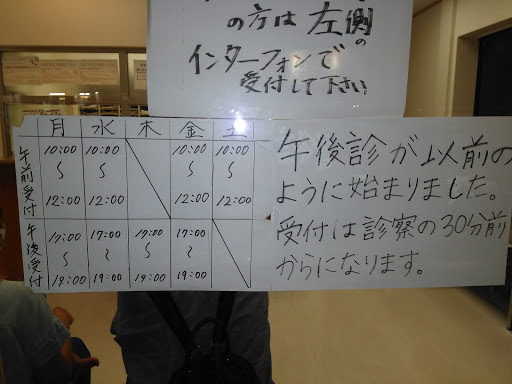 の方は左側の
インターフォンで
受付して下さい
月 水 木 金 土
午前受付 10:00～12:00 10:00～12:00 10:00～12:00 10:00～12:00
午後受付 17:00～19:00 17:00～19:00 17:00～19:00 17:00～19:00
午後診が以前の
ように始まりました。
受付は診察の30分前
からになります。